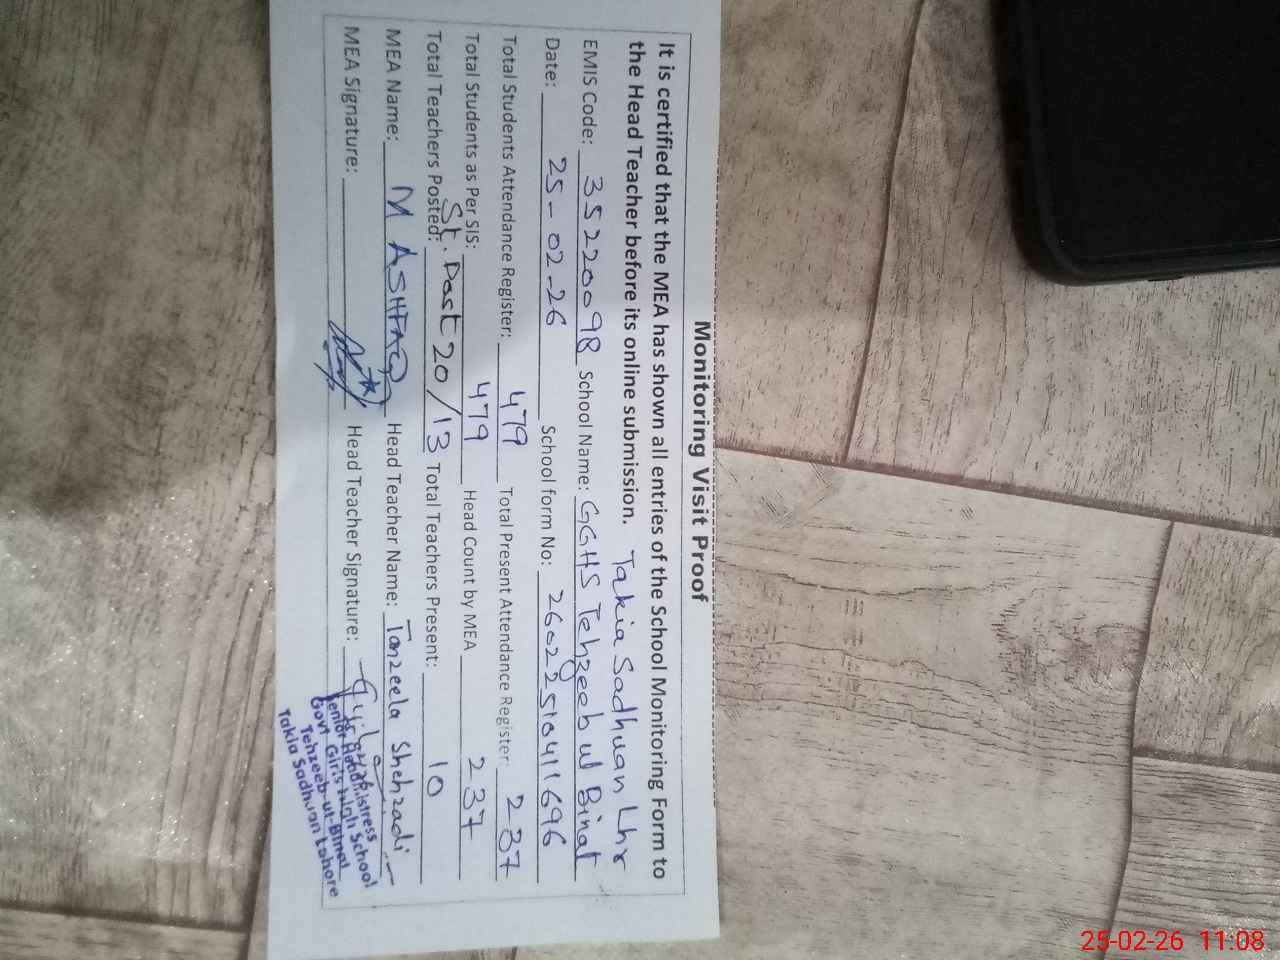 Monitoring Visit Proof
It is certified that the MEA has shown all entries of the School Monitoring Form to
the Head Teacher before its online submission. Takia Sadhuan Lhr
EMIS Code: 35220098 School Name: GGHS Tehzeeb ul Binat
Date: 25-02-26 School form No: 26022510411696
Total Students Attendance Register: 479 Total Present Attendance Register: 237
Total Students as Per SIS: 479 Head Count by MEA 237
Total Teachers Posted: St. Post 20/13 Total Teachers Present: 10
MEA Name: M ASHFAQ Head Teacher Name: Tanzeela Shehzadi
MEA Signature: Head Teacher Signature:
Senior Headmistress
Govt Girls High School
Tehzeeb-ul-Binat
Takia Sadhuan Lahore
25-02-26 11:08